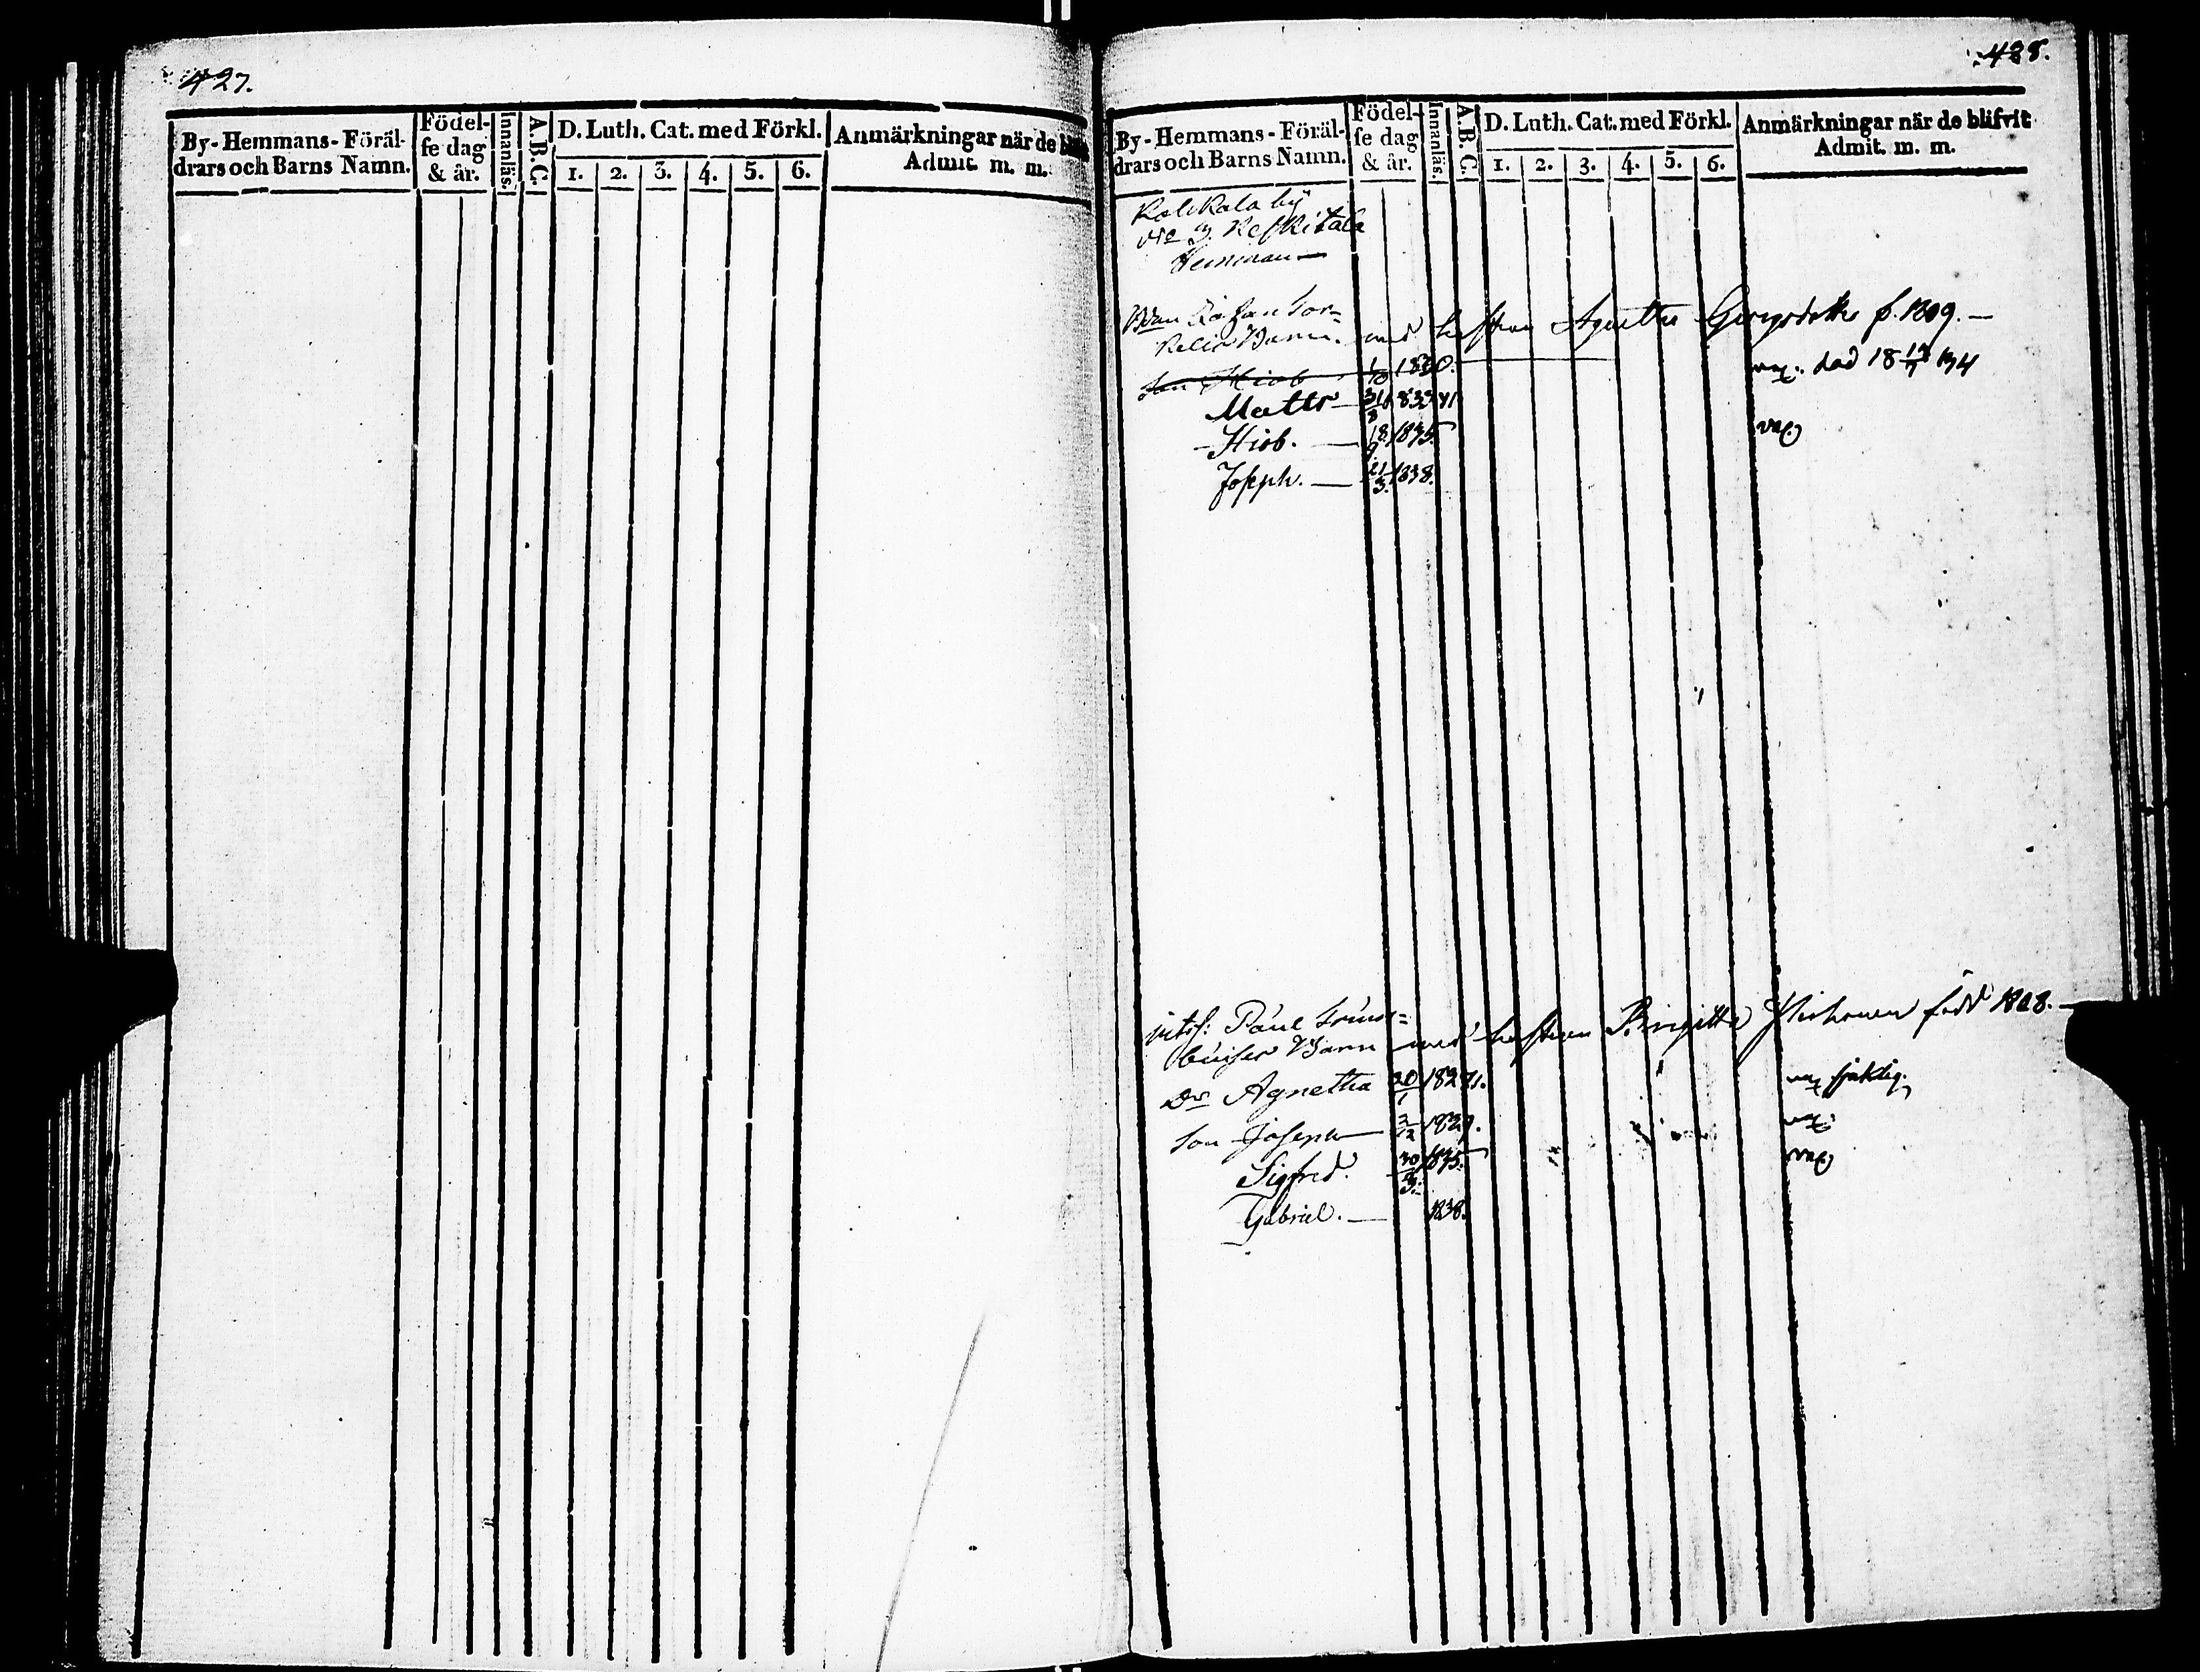 427.
By-Hemmans-Föräl-
drars och Barns Namn.
Födel-
se dag
& år.
Innanläs.
A.B.C.
D. Luth. Cat. med Förkl.
1. 2. 3. 4. 5. 6.
Anmärkningar när de
Admit. m. m.
438.
By-Hemmans-Föräl-
drars och Barns Namn.
Födel-
se dag
& år.
Innanläs.
A.B.C.
D. Luth. Cat. med Förkl.
1. 2. 3. 4. 5. 6.
Anmärkningar när de blifvit
Admit. m. m.
by
N:o 3. Keskitalo
Hemman
Barn. med hustrun Agnetha f. 1809.
Son Hiob 1/10 1830. vac. död 18 34
Matts 31/8 833
Hiob. 18/9 1835 vac.
Joseph. 21/3. 1838.
Inhs: Paul
Barn med hustrun Brigitta född 1808.
Dr Agnetha 20/1 182 vac. sjuklig.
Son Joseph 2/12 1829. vac.
Sigfred. 30/3. 1835. vac
Gabriel. 1838.